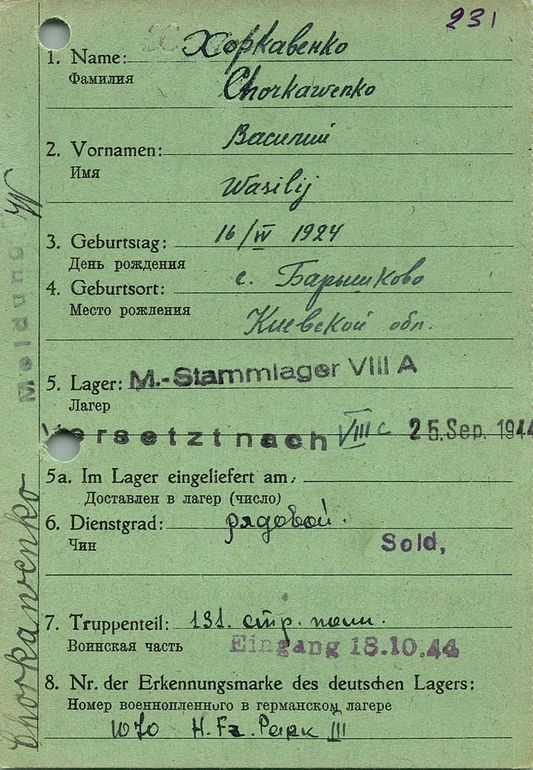 231
1. Name: Хоркавенко
Фамилия
Chorkawenko
2. Vornamen: Василий
Имя
Wasilij
3. Geburtstag: 16/IV 1924
День рождения
4. Geburtsort: с. Барышково
Место рождения
Киевской обл.
5. Lager: M.-Stammlager VIII A
Лагер
Versetzt nach VIII C 25. Sep. 1944
5a. Im Lager eingeliefert am:
Доставлен в лагер (число)
6. Dienstgrad: рядовой.
Чин
Sold,
7. Truppenteil: 131. стр. полк.
Воинская часть
Eingang 18.10.44
8. Nr. der Erkennungsmarke des deutschen Lagers:
Номер военнопленного в германском лагере
1070 H. Fz. Park III
Meldung
Chorkawenko W